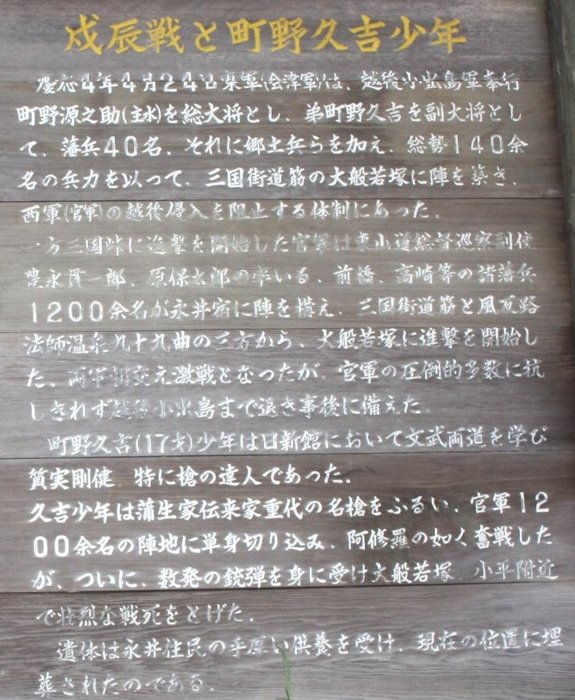 戊辰戦と町野久吉少年
慶応4年4月24日東軍(会津軍)は、越後小出島軍奉行
町野源之助(主水)を総大将とし、弟町野久吉を副大将とし
て、藩兵40名、それに郷土兵らを加え、総勢140余
名の兵力を以って、三国街道筋の大般若塚に陣を築き、
西軍(官軍)の越後侵入を阻止する体制にあった。
一方三国峠に進撃を開始した官軍は東山道総督巡察副使
豊永貫一郎、原保太郎の率いる、前橋、高崎等の諸藩兵
1200余名が永井宿に陣を構え、三国街道筋と風反路
法師温泉九十九曲の三方から、大般若塚に進撃を開始し
た。両軍相交え激戦となったが、官軍の圧倒的多数に抗
しきれず越後小出島まで退き事後に備えた。
町野久吉(17才)少年は日新館において文武両道を学び
質実剛健、特に槍の達人であった。
久吉少年は蒲生家伝来家重代の名槍をふるい、官軍12
00余名の陣地に単身切り込み、阿修羅の如く奮戦した
が、ついに、数発の銃弾を身に受け大般若塚、小平附近
で壮烈な戦死をとげた。
遺体は永井住民の手厚い供養を受け、現在の位置に埋
葬されたのである。